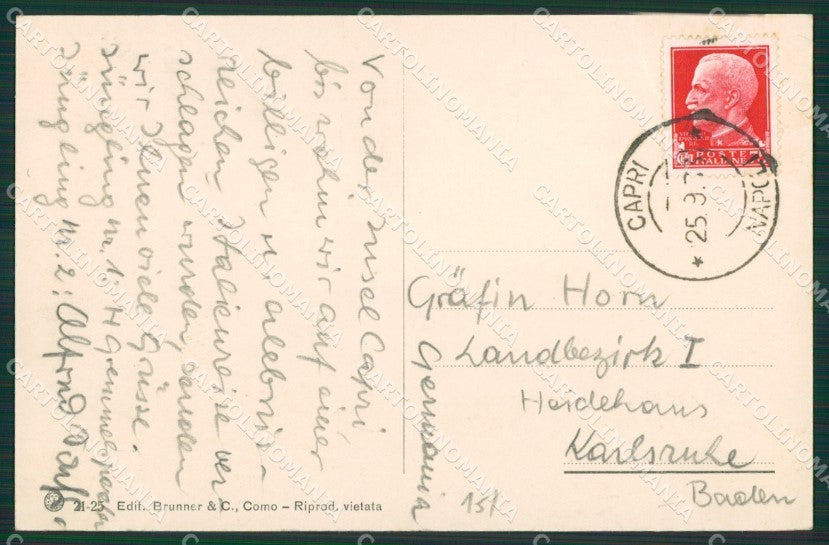 Von der Insel Capri
bis wohin wir auf einer
billigen u. erlebnis-
reichen Italienreise ver-
schlagen wurden, senden
wir Ihnen viele Grüsse.
Jüngling nr. 1: H
Jüngling nr. 2: Alfred
POSTE
ITALIANE
CAPRI
NAPOLI
25.9.
Gräfin Horn
Landbezirk I
Heidehaus
Karlsruhe
Baden
Germania
15/
21-25 Edit. Brunner & C., Como – Riprod. vietata
CARTOLINOMANIA